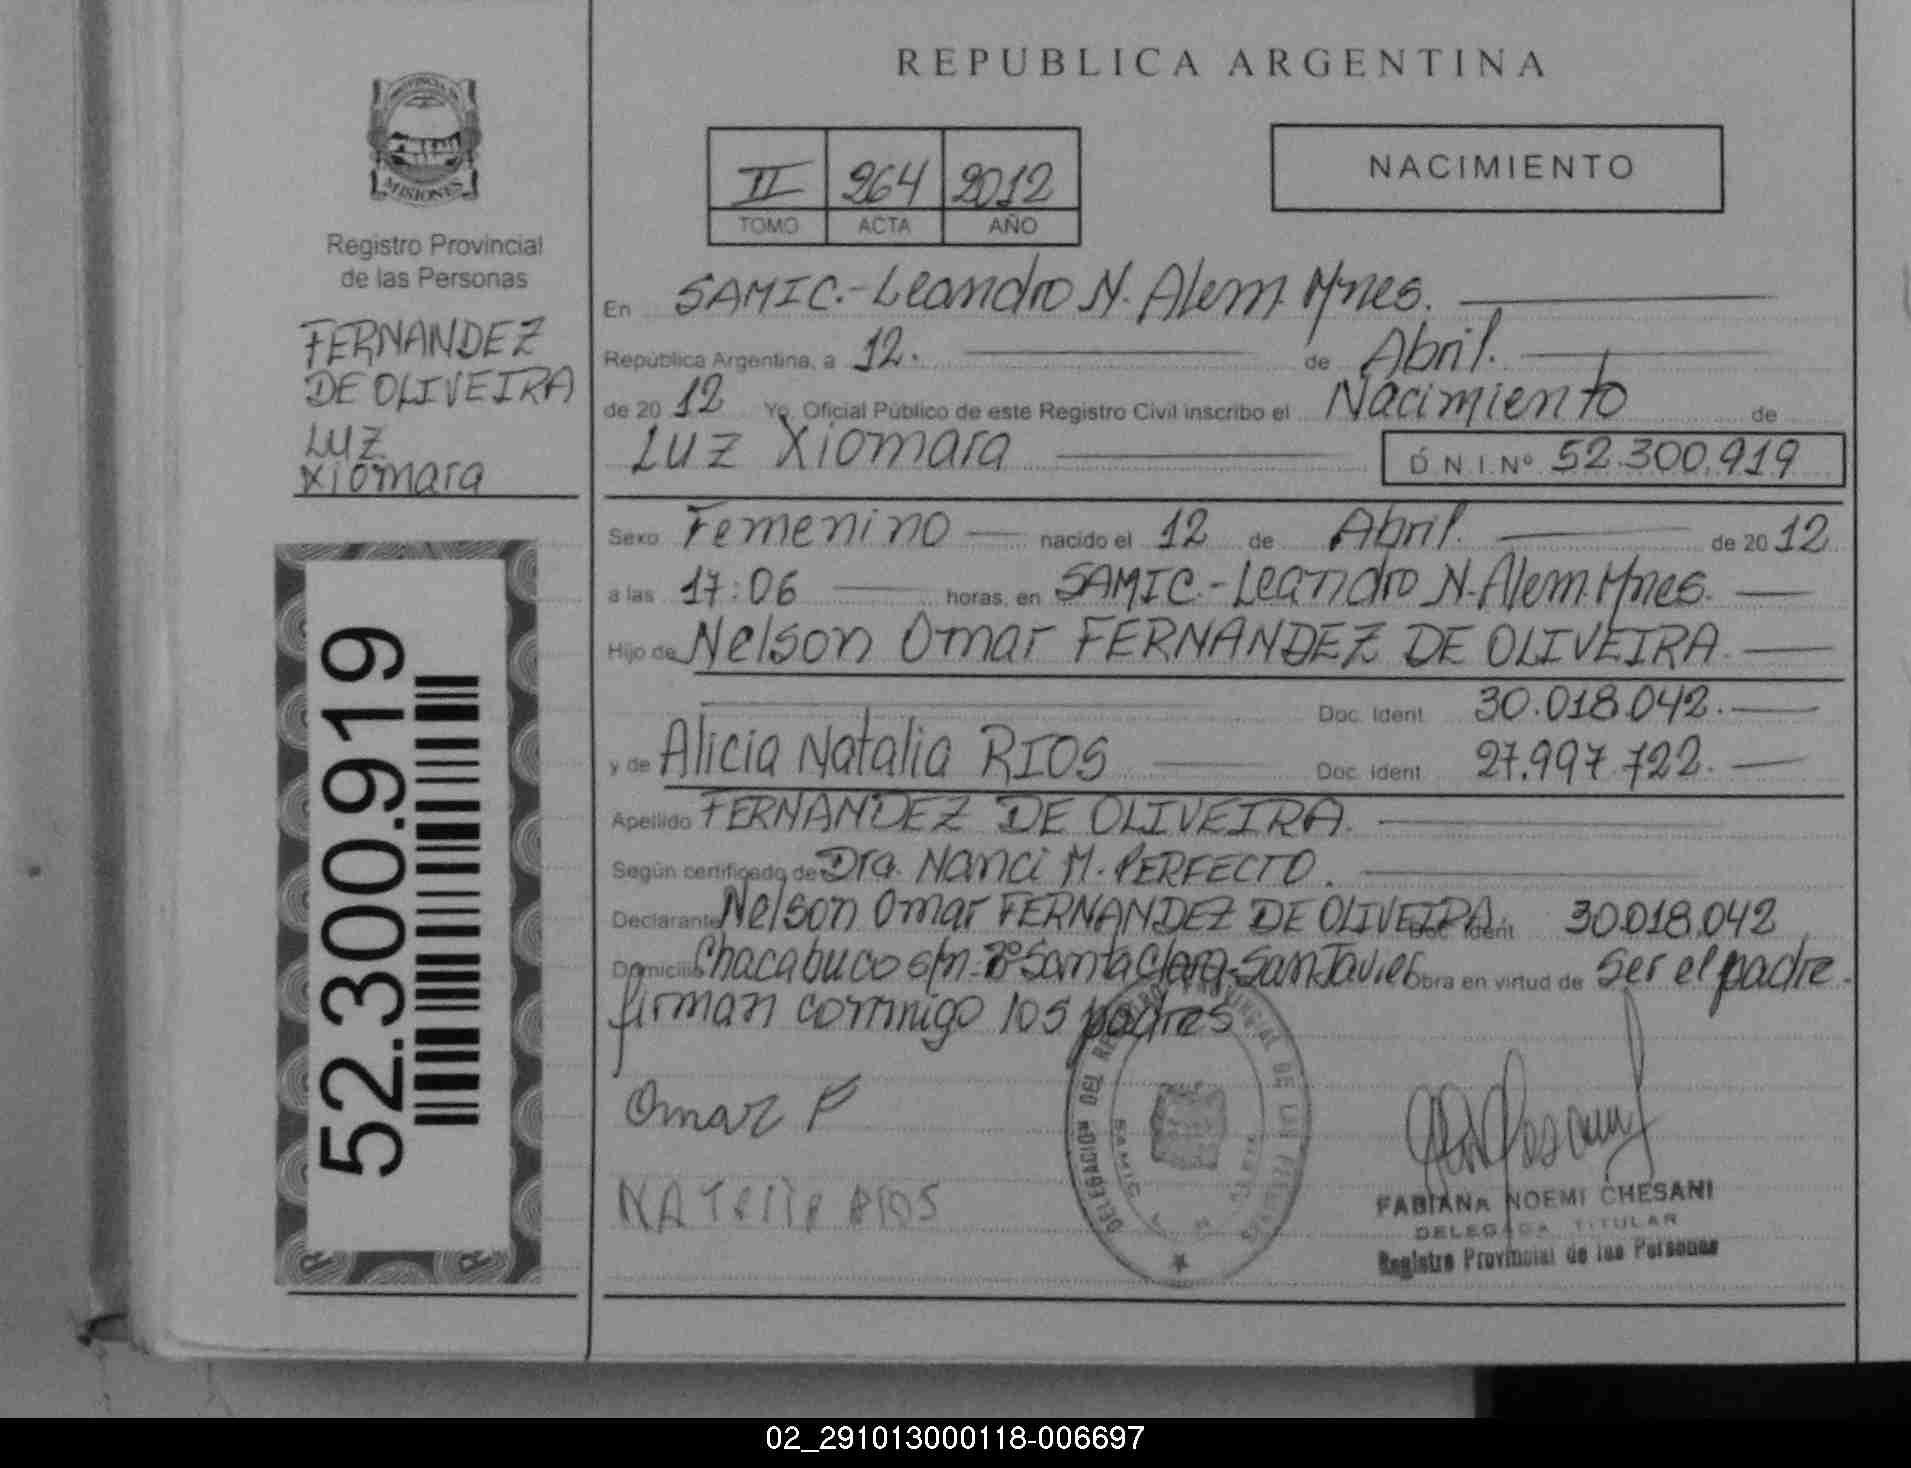 REPUBLICA ARGENTINA
PROVINCIA DE
MISIONES
Registro Provincial
de las Personas
FERNANDEZ
DE OLIVEIRA
LUZ
Xiomara
52.300.919
II 264 2012
TOMO ACTA AÑO
NACIMIENTO
En SAMIC.-Leandro N. Alem. Mnes.
República Argentina, a 12. de Abril.
de 2012 Yo, Oficial Público de este Registro Civil inscribo el Nacimiento de
LUZ Xiomara D N.I.Nº 52.300.919
Sexo Femenino nacido el 12 de Abril. de 2012
a las 17:06 horas, en SAMIC.-Leandro N. Alem. Mnes.
Hijo de Nelson Omar FERNANDEZ DE OLIVEIRA.
Doc. Ident. 30.018.042.
y de Alicia Natalia RIOS Doc. Ident. 27.997.722.
Apellido FERNANDEZ DE OLIVEIRA.
Según certificado de Dra. Nanci M. PERFECTO.
Declarante Nelson Omar FERNANDEZ DE OLIVEIRA. Doc. Ident. 30.018.042
Domicilio Chacabuco s/n- Bº Santa Clara-San Javier Obra en virtud de ser el padre.
firman conmigo los padres
Omar F
NATalia RIOS
DELEGACION DEL REGISTRO PROVINCIAL DE LAS PERSONAS
SAMIC
FABIANA NOEMI CHESANI
DELEGADA TITULAR
Registro Provincial de las Personas
02_291013000118-006697